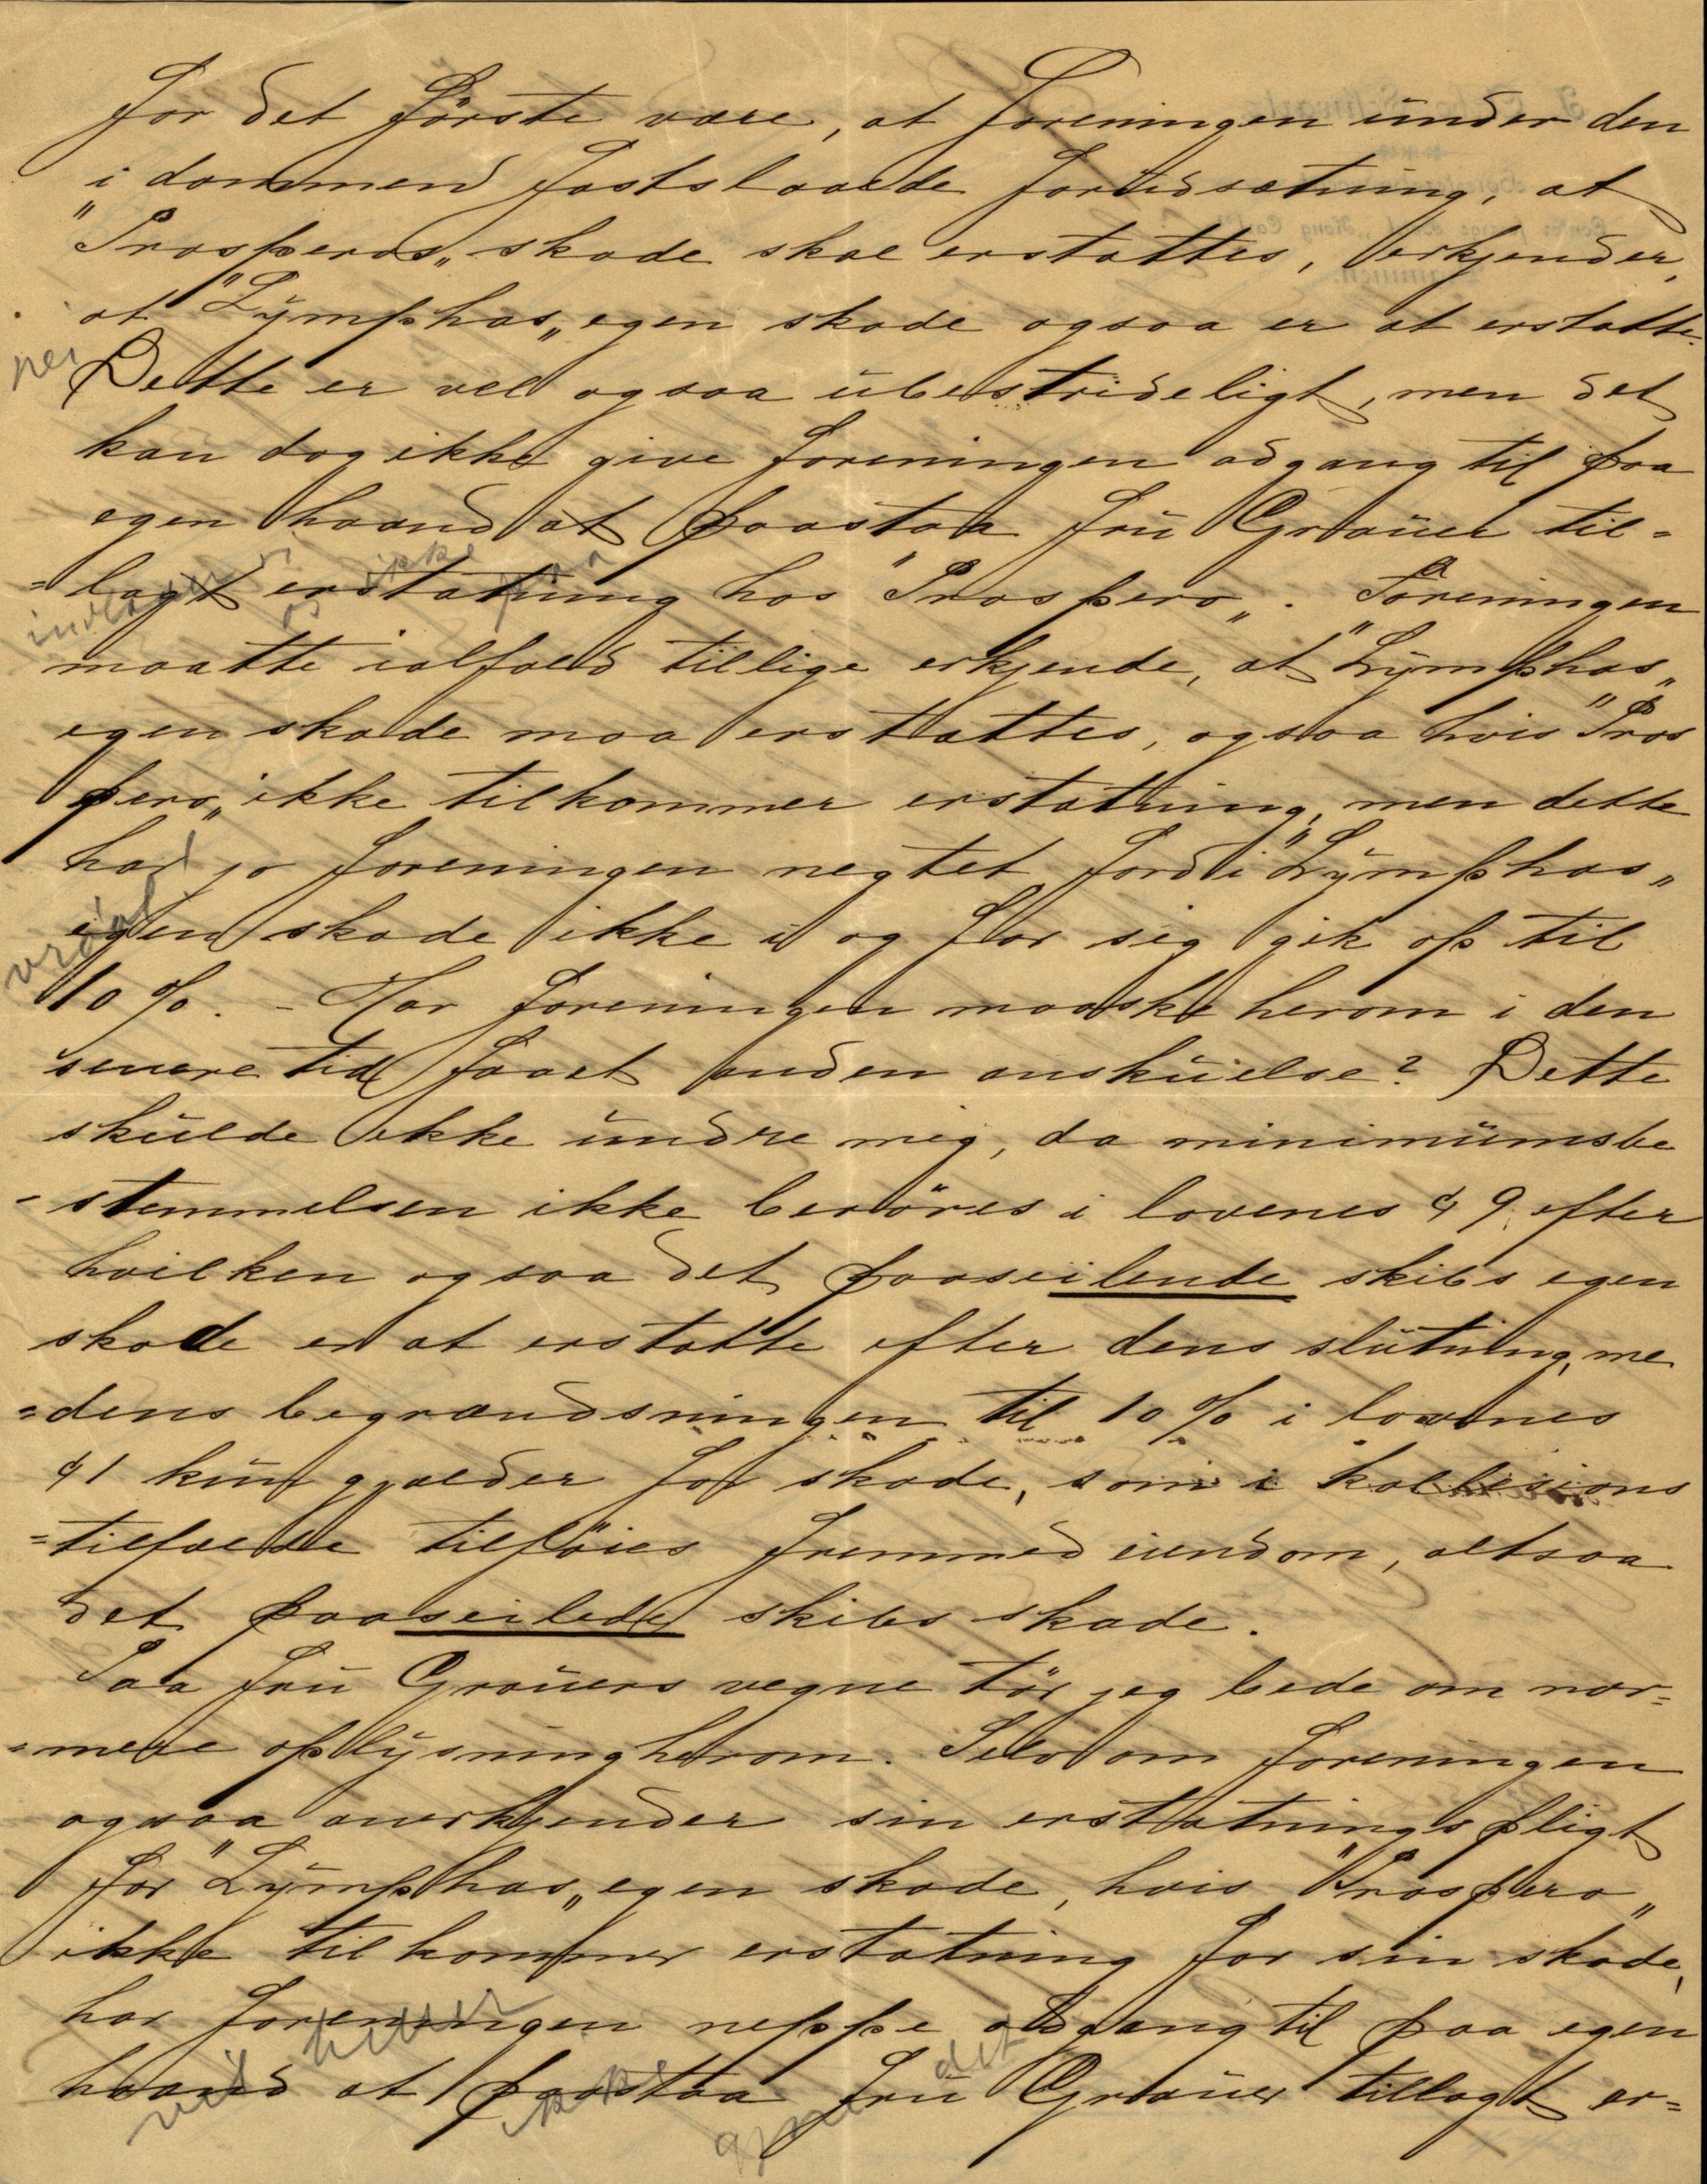 for det første være, at foreningen under den
i dommen fastslaaede forudsætning, at
"Prosperos„ skade skal erstattes, erkjender,
at "Lymphas„ egen skade ogsaa er at erstatte.
nei
Dette er vel ogsaa ubestrideligt, men det
kan dog ikke give foreningen adgang til paa
egen haand at paastaa Fru Grauer til=
=lagt erstatning hos "Prospero„. Foreningen
ikke
maatte ialfald tillige erkjende, at "Lymphas„
egen skade maa erstattes, ogsaa hvis "Pros
pero„ ikke tilkommer erstatning, men dette
har jo foreningen negtet fordi "Lymphas„
egen skade ikke i og for sig gik op til
10 %. – Har foreningen maaske herom i den
senere tid faaet anden anskuelse? Dette
skulde ikke undre mig, da minimumsbe
-stemmelsen ikke berøres i lovenes § 9, efter
hvilken ogsaa det paaseilende skibs egen
skade er at erstatte efter dens slutning, me
=dens begrændsningen til 10 % i lovenes
§ 1 kun gjælder for skade, som i kollisions
=tilfælde tilføies fremmed eiendom, altsaa
det paaseilede skibs skade.
Paa Fru Grauers vegne tør jeg bede om nær=
=mere oplysning herom. Selv om foreningen
ogsaa anerkjender sin erstatningspligt
for "Lymphas„ egen skade, hvis "Prospero„
ikke tilkommer erstatning for sin skade,
har foreningen neppe adgang til paa egen
haand at paastaa Fru Grauer tillagt er=
vil heller ikke gjøre det